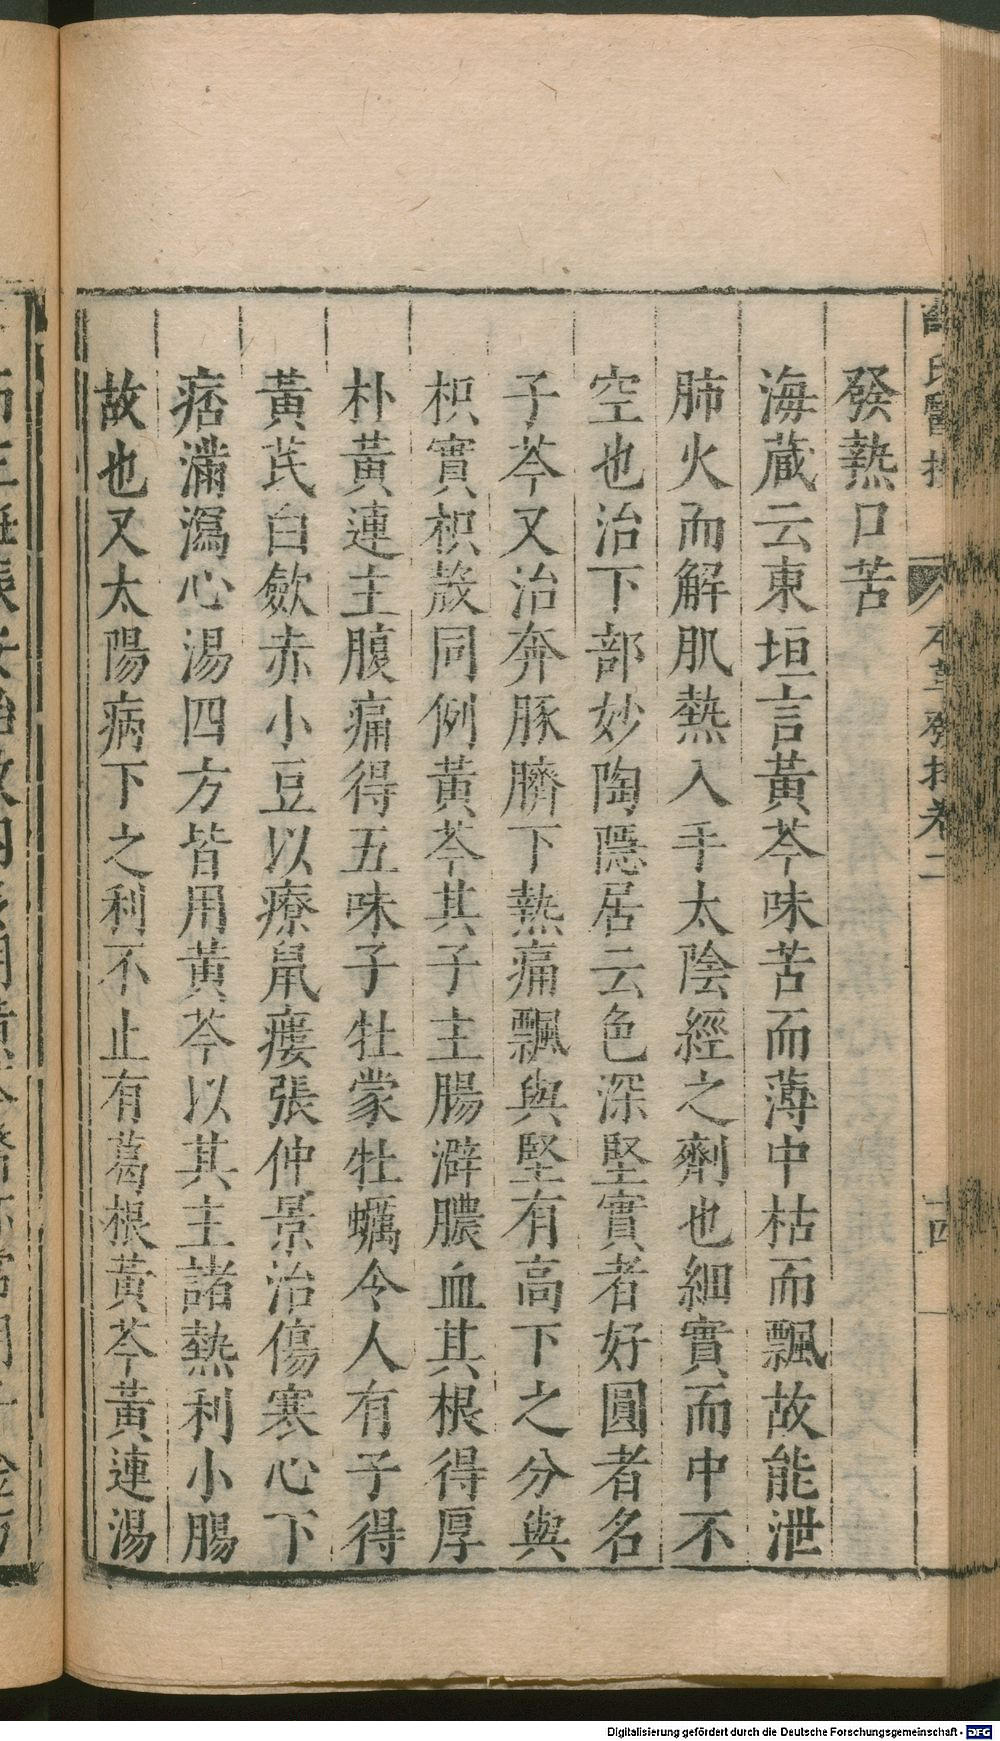 發熱口苦
海蔵云東垣言黃芩味苦而薄中枯而飄故能泄
肺火而解肌熱入手太陰經之劑也細實而中不
空也治下部妙陶隱居云色深堅實者好圓者名
子芩又治奔豚臍下熱痛飄與堅有高下之分與
枳實枳殼同例黃芩其子主腸澼膿血其根得厚
朴黃連主腹痛得五味子牡蒙牡蠣令人有子得
黃芪白歛赤小豆以療鼠瘻張仲景治傷寒心下
痞滿瀉心湯四方皆用黃芩以其主諸熱利小腸
故也又太陽病下之利不止有葛根黃芩黃連湯
氏醫
卷二
十四
Digitalisierung gefördert durch die Deutsche Forschungsgemeinschaft - DFG